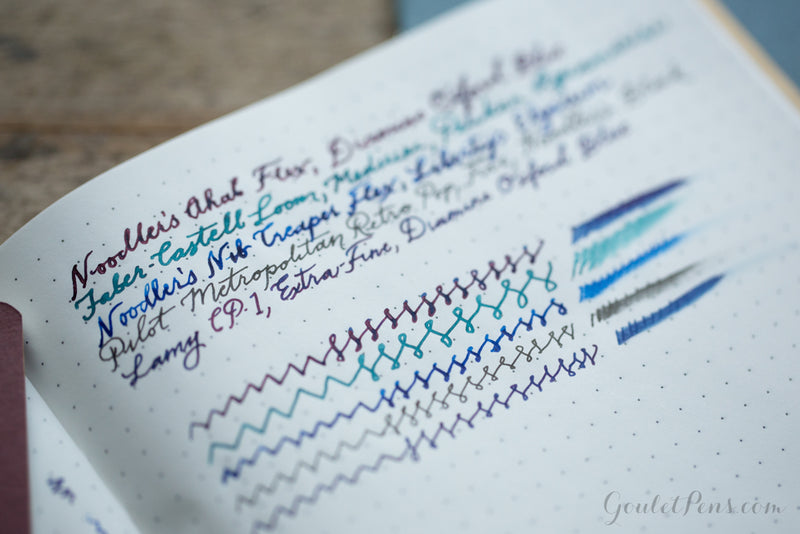 Noodler's Ahab Flex, Diamine Oxford Blue
Faber Castell Loom, Medium,
Noodler's Nib Creaper Flex, Liberty's Elysium
Pilot Metropolitan Retro Pop, Fine, Noodlers Black
Lamy CP.1, Extra Fine, Diamine Oxford Blue
GouletPens.com